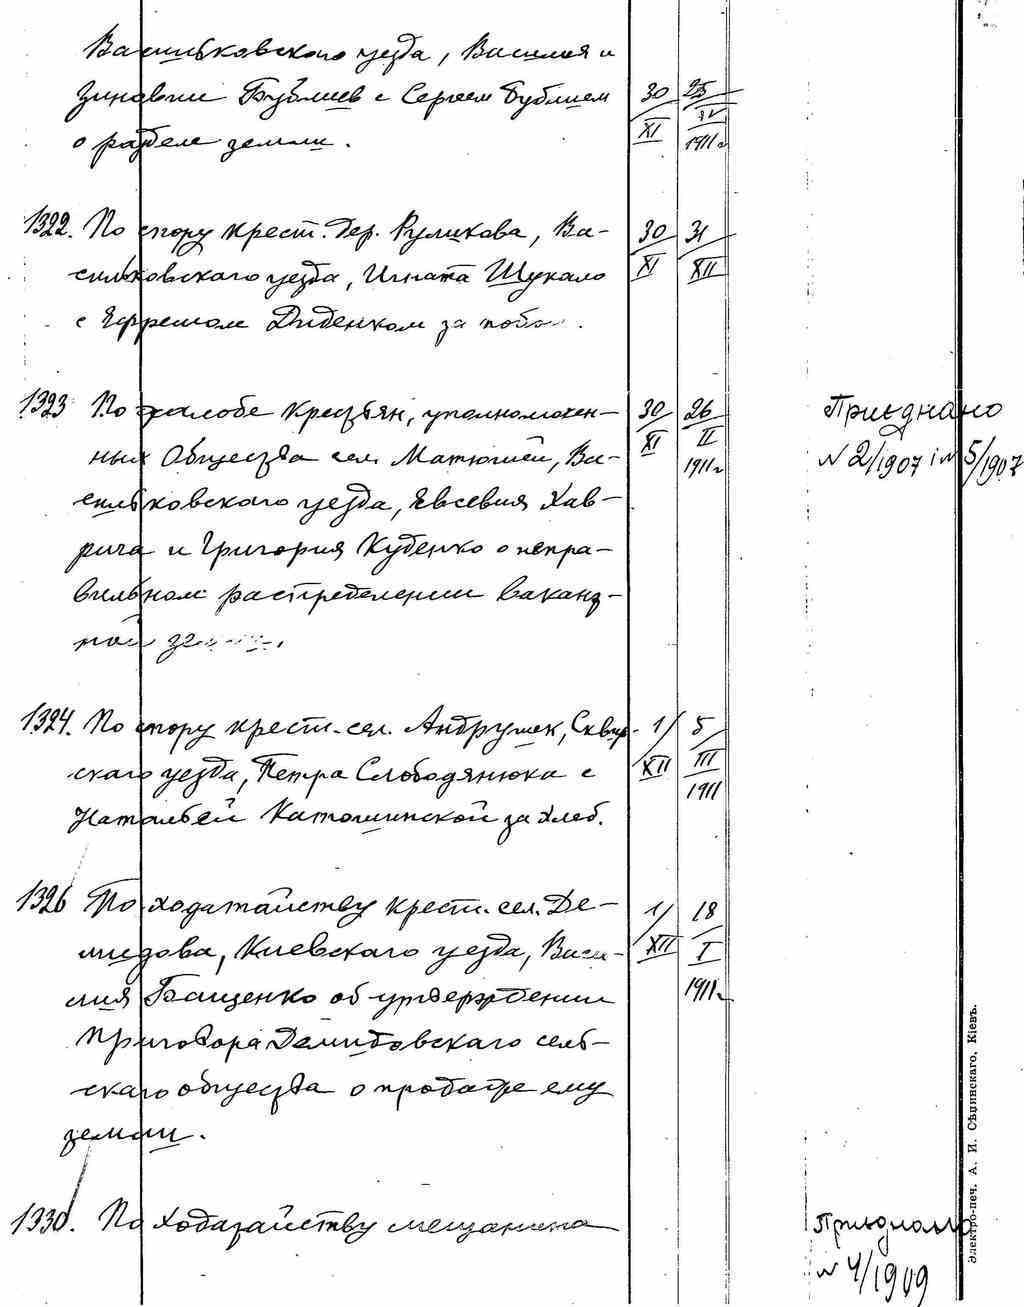 Васильковского уезда, Василия и
Зиновии Бублиев с Сергеем Бублием
о разделе земли.
30/XI 25/IV 1911 г
1322. По спору крест. дер. Руликова, Ва-
сильковскаго уезда, Игната Шукало
с Ефремом Диденком за побои.
30/XI 31/XII
1323 По жалобе крестьян, уполномочен-
ных Общества сел. Матюшей, Ва-
сильковскаго уезда, Евсевия Хав-
рича и Григория Куденко о непра-
вильном распределении вакант-
ной земли.
30/XI 26/II 1911 г
Приєднано
N 2/1907 і N 5/1907
1324. По спору крест. сел. Андрушек, Сквир-
скаго уезда, Петра Слободянюка с
Натальей Катошинской за хлеб.
1/XII 5/III 1911
1326 По ходатайству крест. сел. Де-
мидова, Киевскаго уезда, Васи-
лия Бащенко об утверждении
приговора Демидовскаго сель-
скаго общества о продаже ему
земли.
1/XII 18/I 1911 г.
1330. По ходатайству мещанина
Приєднано
N 4/1909
Электро-печ. А. И. Сѣцинскаго, Кіевъ.